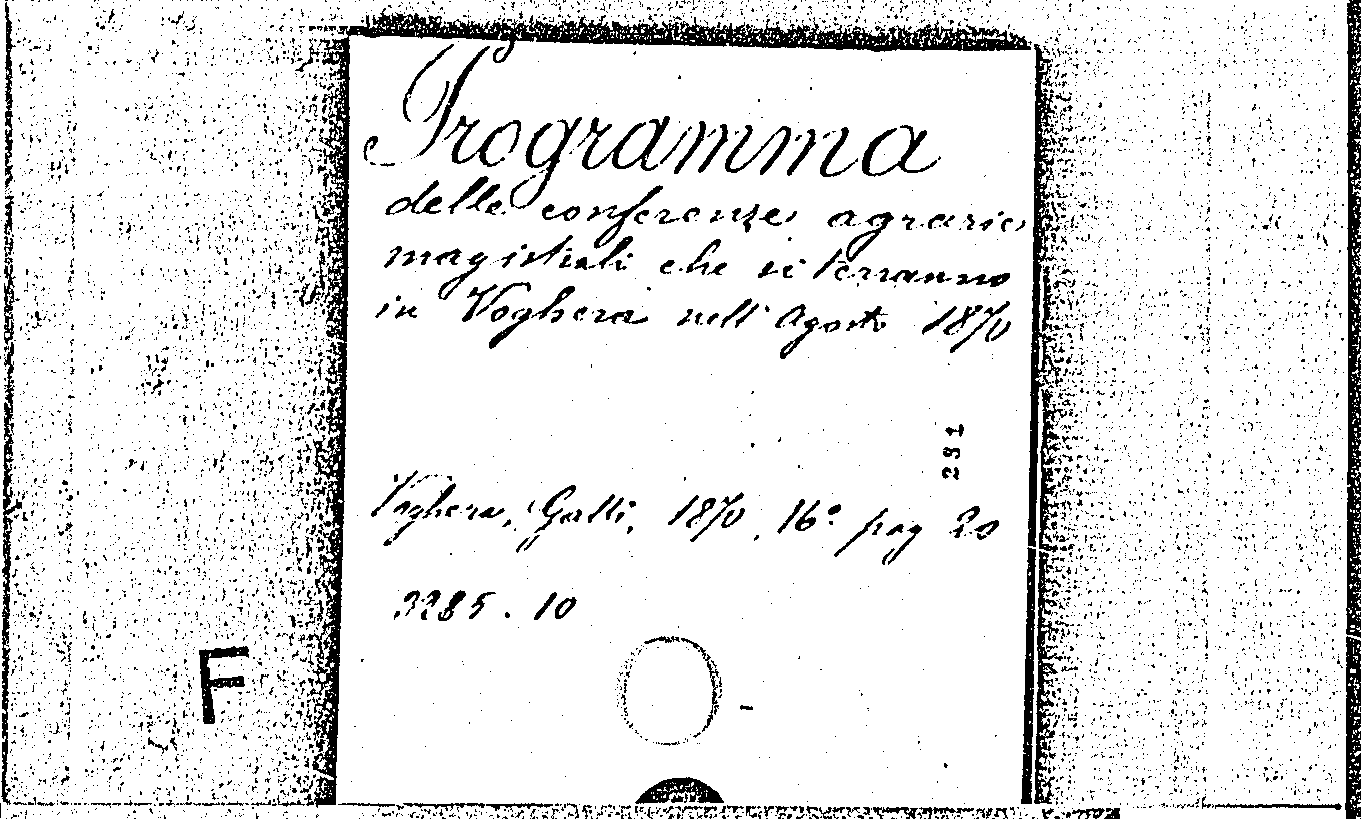 Programma
delle conferenze agrarie
magistrali che si terranno
in Voghera nell' Agosto 1870
231
Voghera, Gatti, 1870, 16° pag 20
3285.10
F